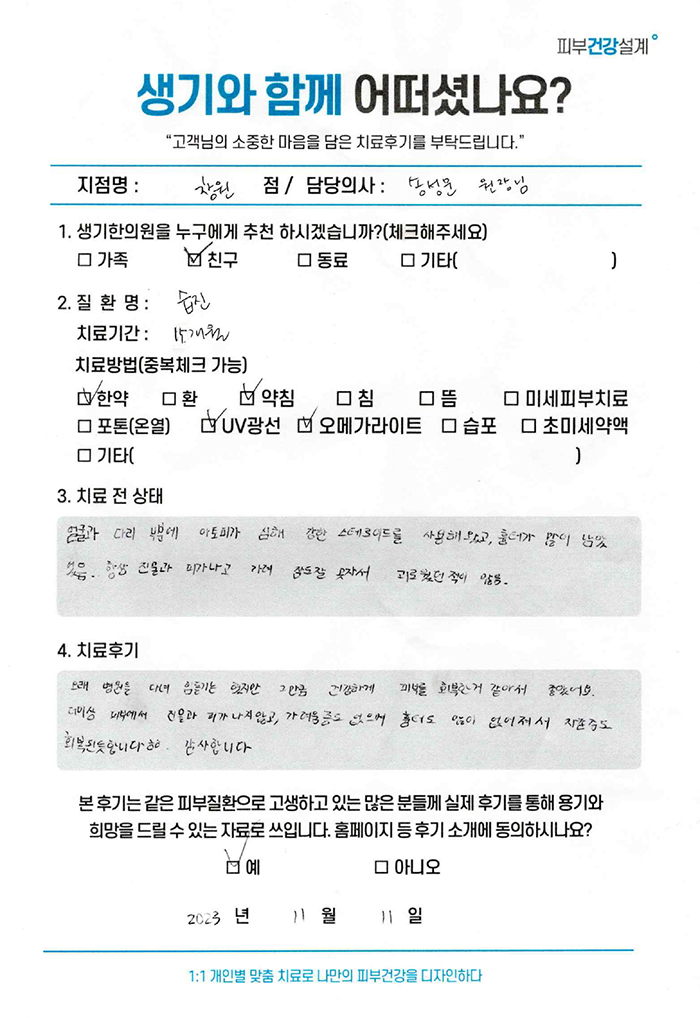 피부건강설계
생기와 함께 어떠셨나요?
"고객님의 소중한 마음을 담은 치료후기를 부탁드립니다."
지점명 : 창원 점 / 담당의사 : 송성문 원장님
1. 생기한의원을 누구에게 추천 하시겠습니까?(체크해주세요)
☐ 가족 ☑ 친구 ☐ 동료 ☐ 기타( )
2. 질 환 명 : 습진
치료기간 : 15개월
치료방법(중복체크 가능)
☑ 한약 ☐ 환 ☑ 약침 ☐ 침 ☐ 뜸 ☐ 미세피부치료
☐ 포톤(온열) ☑ UV광선 ☑ 오메가라이트 ☐ 습포 ☐ 초미세약액
☐ 기타( )
3. 치료 전 상태
얼굴과 다리 부분에 아토피가 심해 강한 스테로이드를 사용해왔고, 흉터가 많이 남았
었음. 항상 진물과 피가나고 가려 잠도잘 못자서 괴로웠던적이 많음.
4. 치료후기
오래 병원을 다녀 힘들기는 했지만 그만큼 건강하게 피부를 회복한거 같아서 좋았어요.
더이상 피부에서 진물과 피가 나지않고, 가려움증도 없으며 흉터도 많이 없어져서 자존감도
회복된듯합니다 감사합니다
본 후기는 같은 피부질환으로 고생하고 있는 많은 분들께 실제 후기를 통해 용기와
희망을 드릴 수 있는 자료로 쓰입니다. 홈페이지 등 후기 소개에 동의하시나요?
☑ 예 ☐ 아니오
2023 년 11 월 11 일
1:1 개인별 맞춤 치료로 나만의 피부건강을 디자인하다